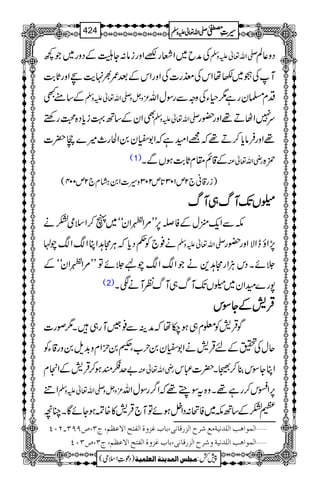 سیرتِ مصطفی صلی اللہ تعالیٰ علیہ وسلم 424
دوعالم صلی اللہ تعالیٰ علیہ وسلم کی مدح میں اشعار اور لکھے اور زمانہ جاہلیت کے دور میں جو کچھ
آپ کی ہجو میں لکھا تھا اس کی معذرت کی اور اس کے بعد عمر بھر نہایت سچے اور ثابت
قدم مسلمان رہے مگر حیاء کی وجہ سے رسول اللہ عزوجل و صلی اللہ تعالیٰ علیہ وسلم کے سامنے کبھی
سر نہیں اٹھاتے تھے اور حضور صلی اللہ تعالیٰ علیہ وسلم بھی ان کے ساتھ بہت زیادہ محبت رکھتے
تھے اور فرمایا کرتے تھے کہ مجھے امید ہے کہ ابوسفیان بن الحارث میرے چچا حضرت
حمزہ رضی اللہ تعالیٰ عنہ کے قائم مقام ثابت ہوں گے۔ (1)
(زرقانی ج۲ص۳۰۱تاص۳۰۲وسیرت ابن ہشام ج۲ص۴۰۰)
میلوں تک آگ ہی آگ
مکہ سے ایک منزل کے فاصلہ پر ’’مرالظہران‘‘ میں پہنچ کر اسلامی لشکر نے
پڑاؤ ڈالا اور حضور صلی اللہ تعالیٰ علیہ وسلم نے فوج کو حکم دیا کہ ہر مجاہد اپنا الگ الگ چولہا
جلائے۔ دس ہزار مجاہدین نے جو الگ الگ چولہے جلائے تو ’’مرالظہران‘‘ کے
پورے میدان میں میلوں تک آگ ہی آگ نظر آنے لگی۔ (2)
قریش کے جاسوس
گو قریش کو معلوم ہی ہو چکا تھا کہ مدینہ سے فوجیں آرہی ہیں۔ مگر صورت
حال کی تحقیق کے لئے قریش نے ابوسفیان بن حرب، حکیم بن حزام و بدیل بن ورقاء کو
اپنا جاسوس بنا کر بھیجا۔ حضرت عباس رضی اللہ تعالیٰ عنہ بے حد فکر مند ہو کر قریش کے انجام
پر افسوس کر رہے تھے۔ وہ یہ سوچتے تھے کہ اگر رسول اللہ عزوجل و صلی اللہ تعالیٰ علیہ وسلم اتنے
عظیم لشکر کے ساتھ مکہ میں فاتحانہ داخل ہوئے تو آج قریش کا خاتمہ ہو جائے گا۔ چنانچہ
المواهب اللدنیة مع شرح الزرقانی، باب غزوة الفتح الاعظم، ج۳، ص۳۹۹۔۴۰۲
المواهب اللدنیة وشرح الزرقانی، باب غزوة الفتح الاعظم، ج۳، ص۴۰۳
پیش کش: مجلس المدينة العلمية (دعوتِ اسلامی)